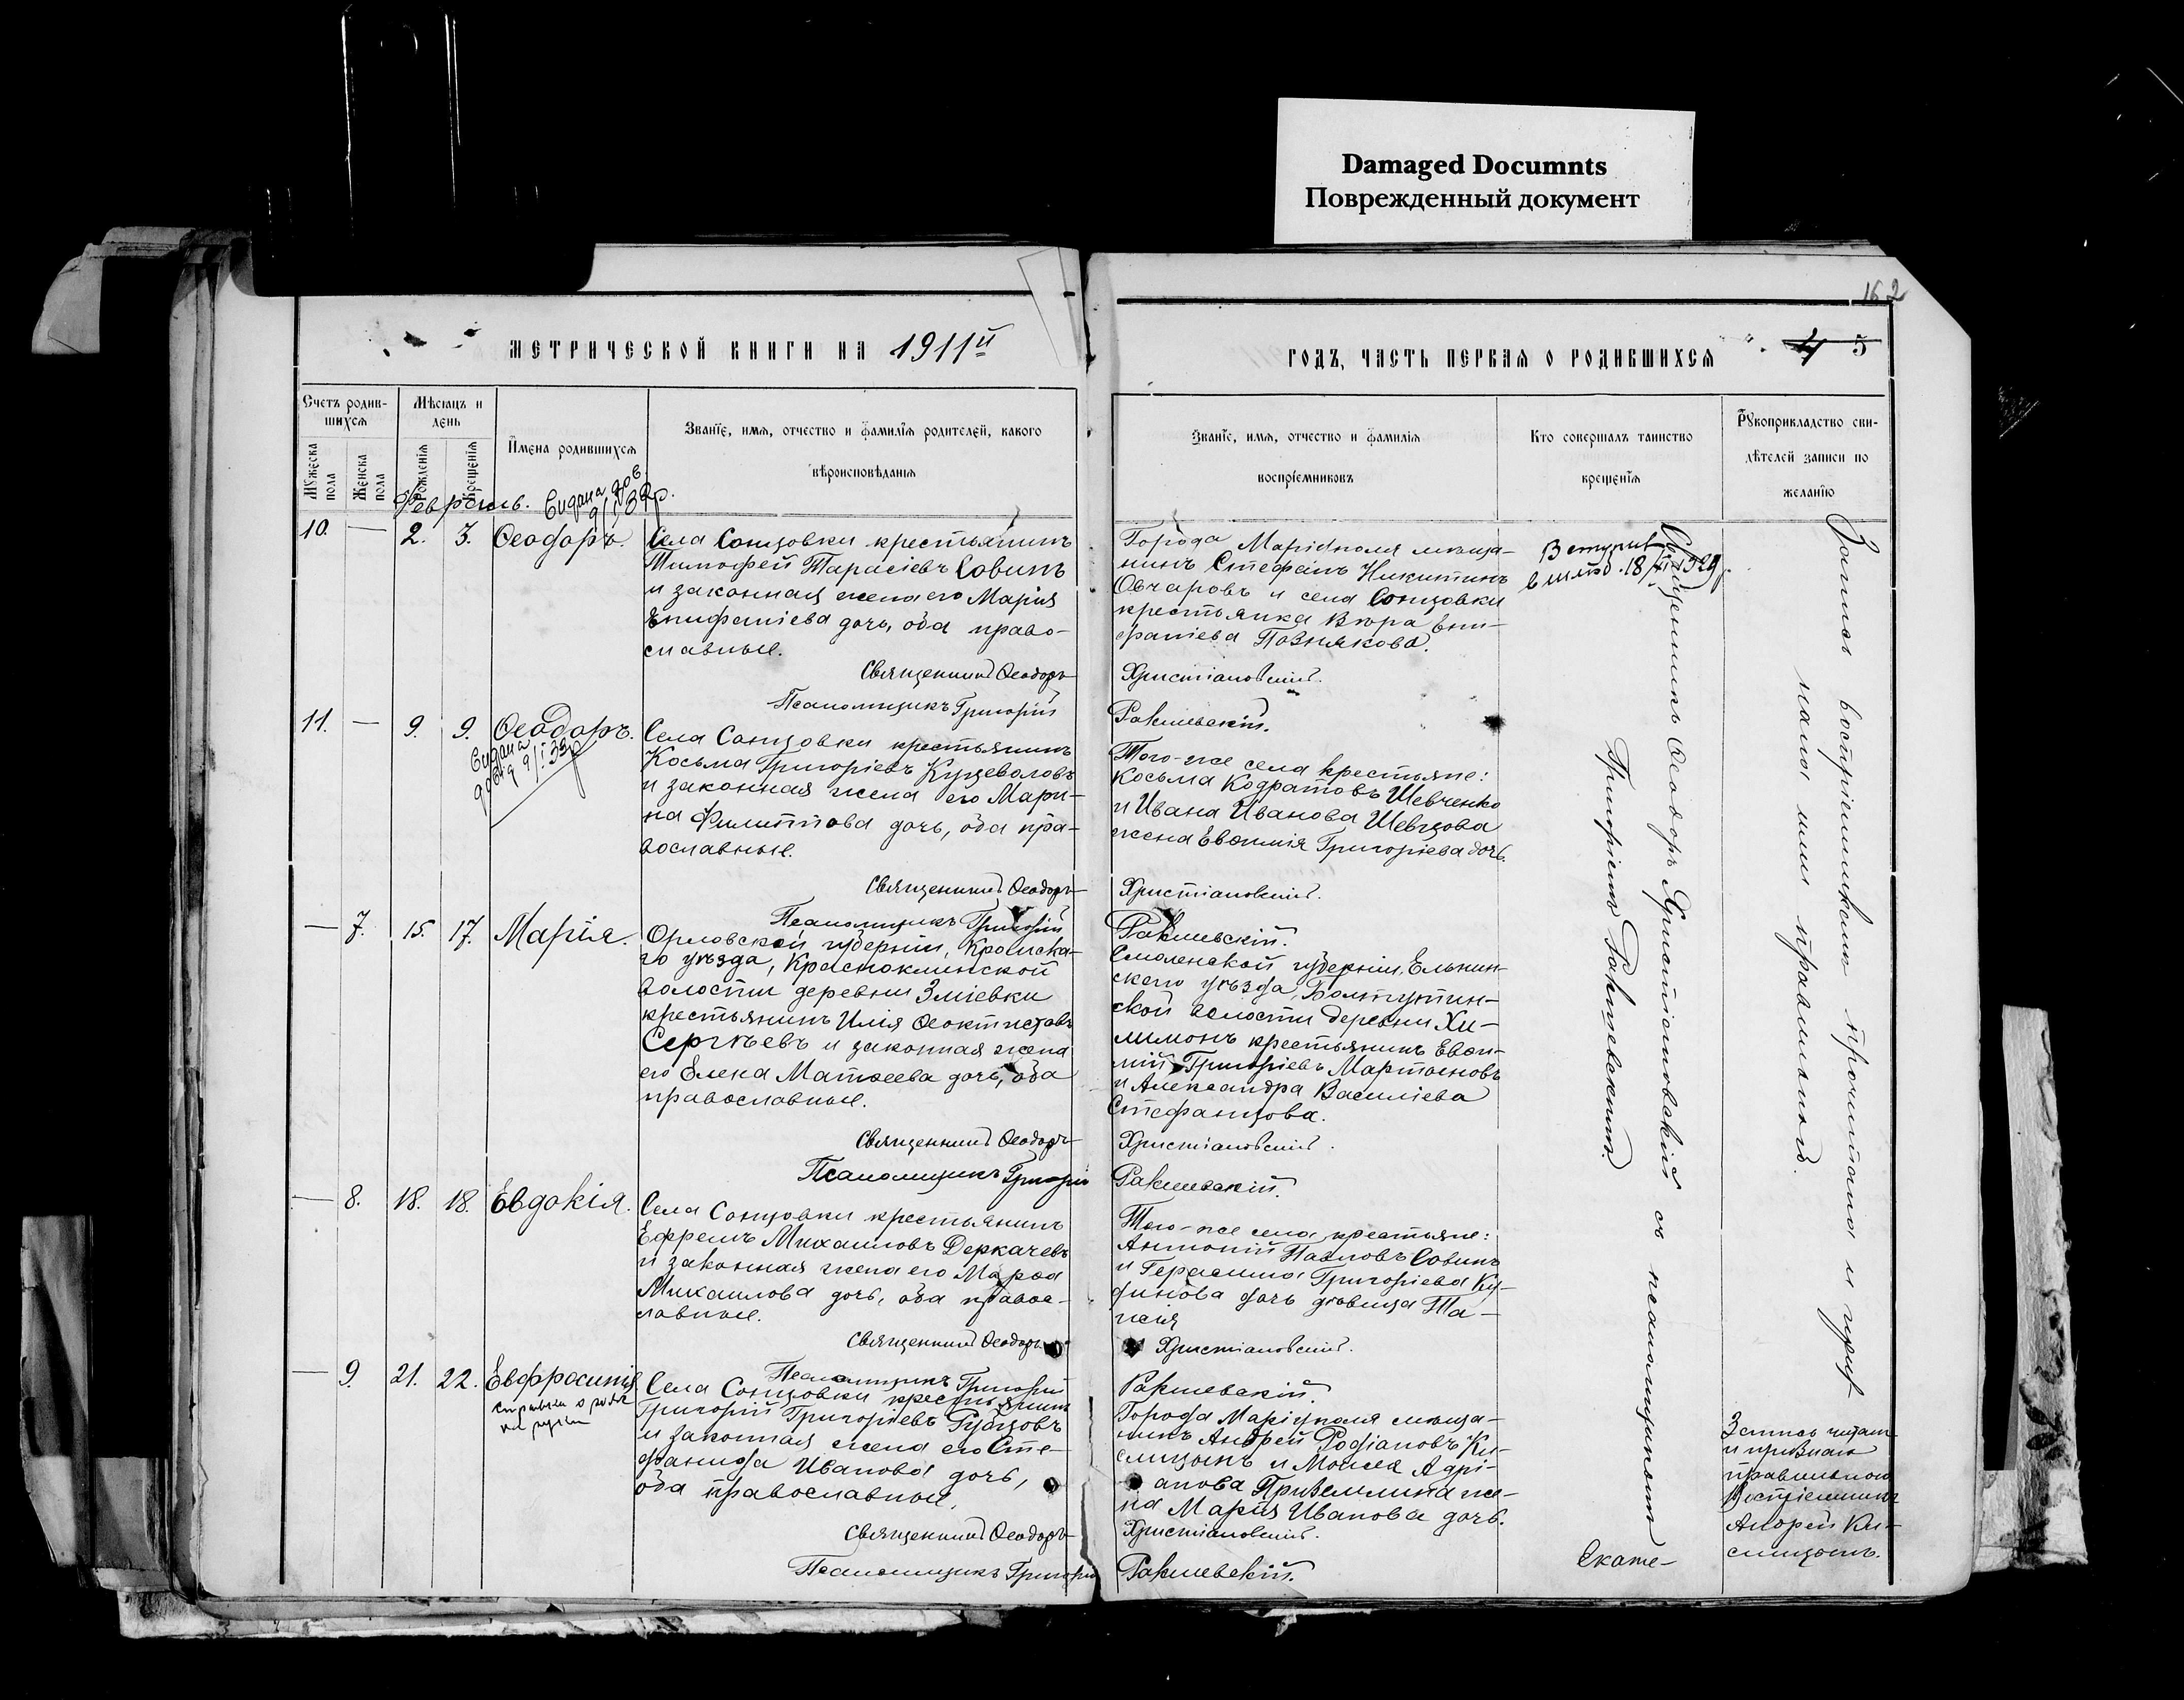 Damaged Documnts
Поврежденный документ
162
МЕТРИЧЕСКОЙ КНИГИ НА 1911й
ГОДЪ, ЧАСТЬ ПЕРВАЯ О РОДИВШИХСЯ
4 5
Счетъ родив-
шихся
Мѣсяцъ и
день
Мужеска
пола
Женска
пола
Рожденія
Крещенія
Имена родившихся
Званіе, имя, отчество и фамилія родителей, какого
вѣроисповѣданія
Званіе, имя, отчество и фамилія
воспріемниковъ
Кто совершалъ таинство
крещенія
Рукоприкладство сви-
дѣтелей записи по
желанію
Февраль.
10. — 2. 3. Ѳеодоръ.
Села Сонцовки крестьянинъ
Тимофей Тарасіевъ Совинъ
и законная жена его Марія
Епифаніева дочь, оба право-
славные.
Священникъ Ѳеодоръ
Псаломщикъ Григорій
Города Маріуполя мѣща-
нинъ Стефанъ Никитинъ
Овчаровъ и села Сонцовки
крестьянка Вѣра Епи-
фаніева Познякова.
Христіановскій.
Ракшевскій.
Вступив
в 18/ 1929
11. — 9. 9. Ѳеодоръ.
Села Сонцовки крестьянинъ
Косьма Григоріевъ Куцеволовъ
и законная жена его Мари-
на Филиппова дочь, оба пра-
вославные.
Священникъ Ѳеодоръ
Псаломщикъ Григорій
Того-же села крестьяне:
Косьма Кодратовъ Шевченко
и Ивана Иванова Шевцова
жена Евѳимія Григоріева дочь.
Христіановскій.
Ракшевскій.
— 7. 15. 17. Марія.
Орловской губерніи, Кромска-
го уѣзда, Краснокминской
волости деревни Зміевки
крестьянинъ Илія Ѳеоктистовъ
Сергѣевъ и законная жена
его Елена Матѳеева дочь, оба
православные.
Священникъ Ѳеодоръ
Псаломщикъ Григорій
Смоленской губерніи, Ельнин-
скаго уѣзда, Болтутин-
ской волости деревни Хи-
лимонъ крестьянинъ Евѳи-
мій Григоріевъ Мартыновъ
и Александра Василіева
Стефанцова.
Христіановскій.
Ракшевскій.
— 8. 18. 18. Евдокія.
Села Сонцовки крестьянинъ
Ефремъ Михаиловъ Деркачевъ
и законная жена его Марѳа
Михаилова дочь, оба правос-
лавные.
Священникъ Ѳеодоръ
Псаломщикъ Григорій
Того-же села крестьяне:
Антоній Павловъ Совинъ
и Герасима Григоріева Ку-
динова дочь дѣвица Та-
исія
Христіановскій.
Ракшевскій.
— 9. 21. 22. Евфросинія
Села Сонцовки крестьянинъ
Григорій Григоріевъ Рубцовъ
и законная жена его Сте-
фанида Иванова дочь,
оба православные.
Священникъ Ѳеодоръ
Псаломщикъ Григорій
Города Маріуполя мѣща-
нинъ Андрей Родіановъ Ки-
слицынъ и Моисея Адрі-
анова жe-
на Марія Иванова дочь.
Христіановскій.
Ракшевскій.
Священникъ Ѳеодоръ Христіановскій съ псаломщикомъ
Григоріемъ Ракшевскимъ.
Екате-
Запись воспріемникамъ прочитана и
нами правильной.
Запись читалъ
и призналъ
правильною
Воспріемникъ
Андрей Ки-
слицынъ.